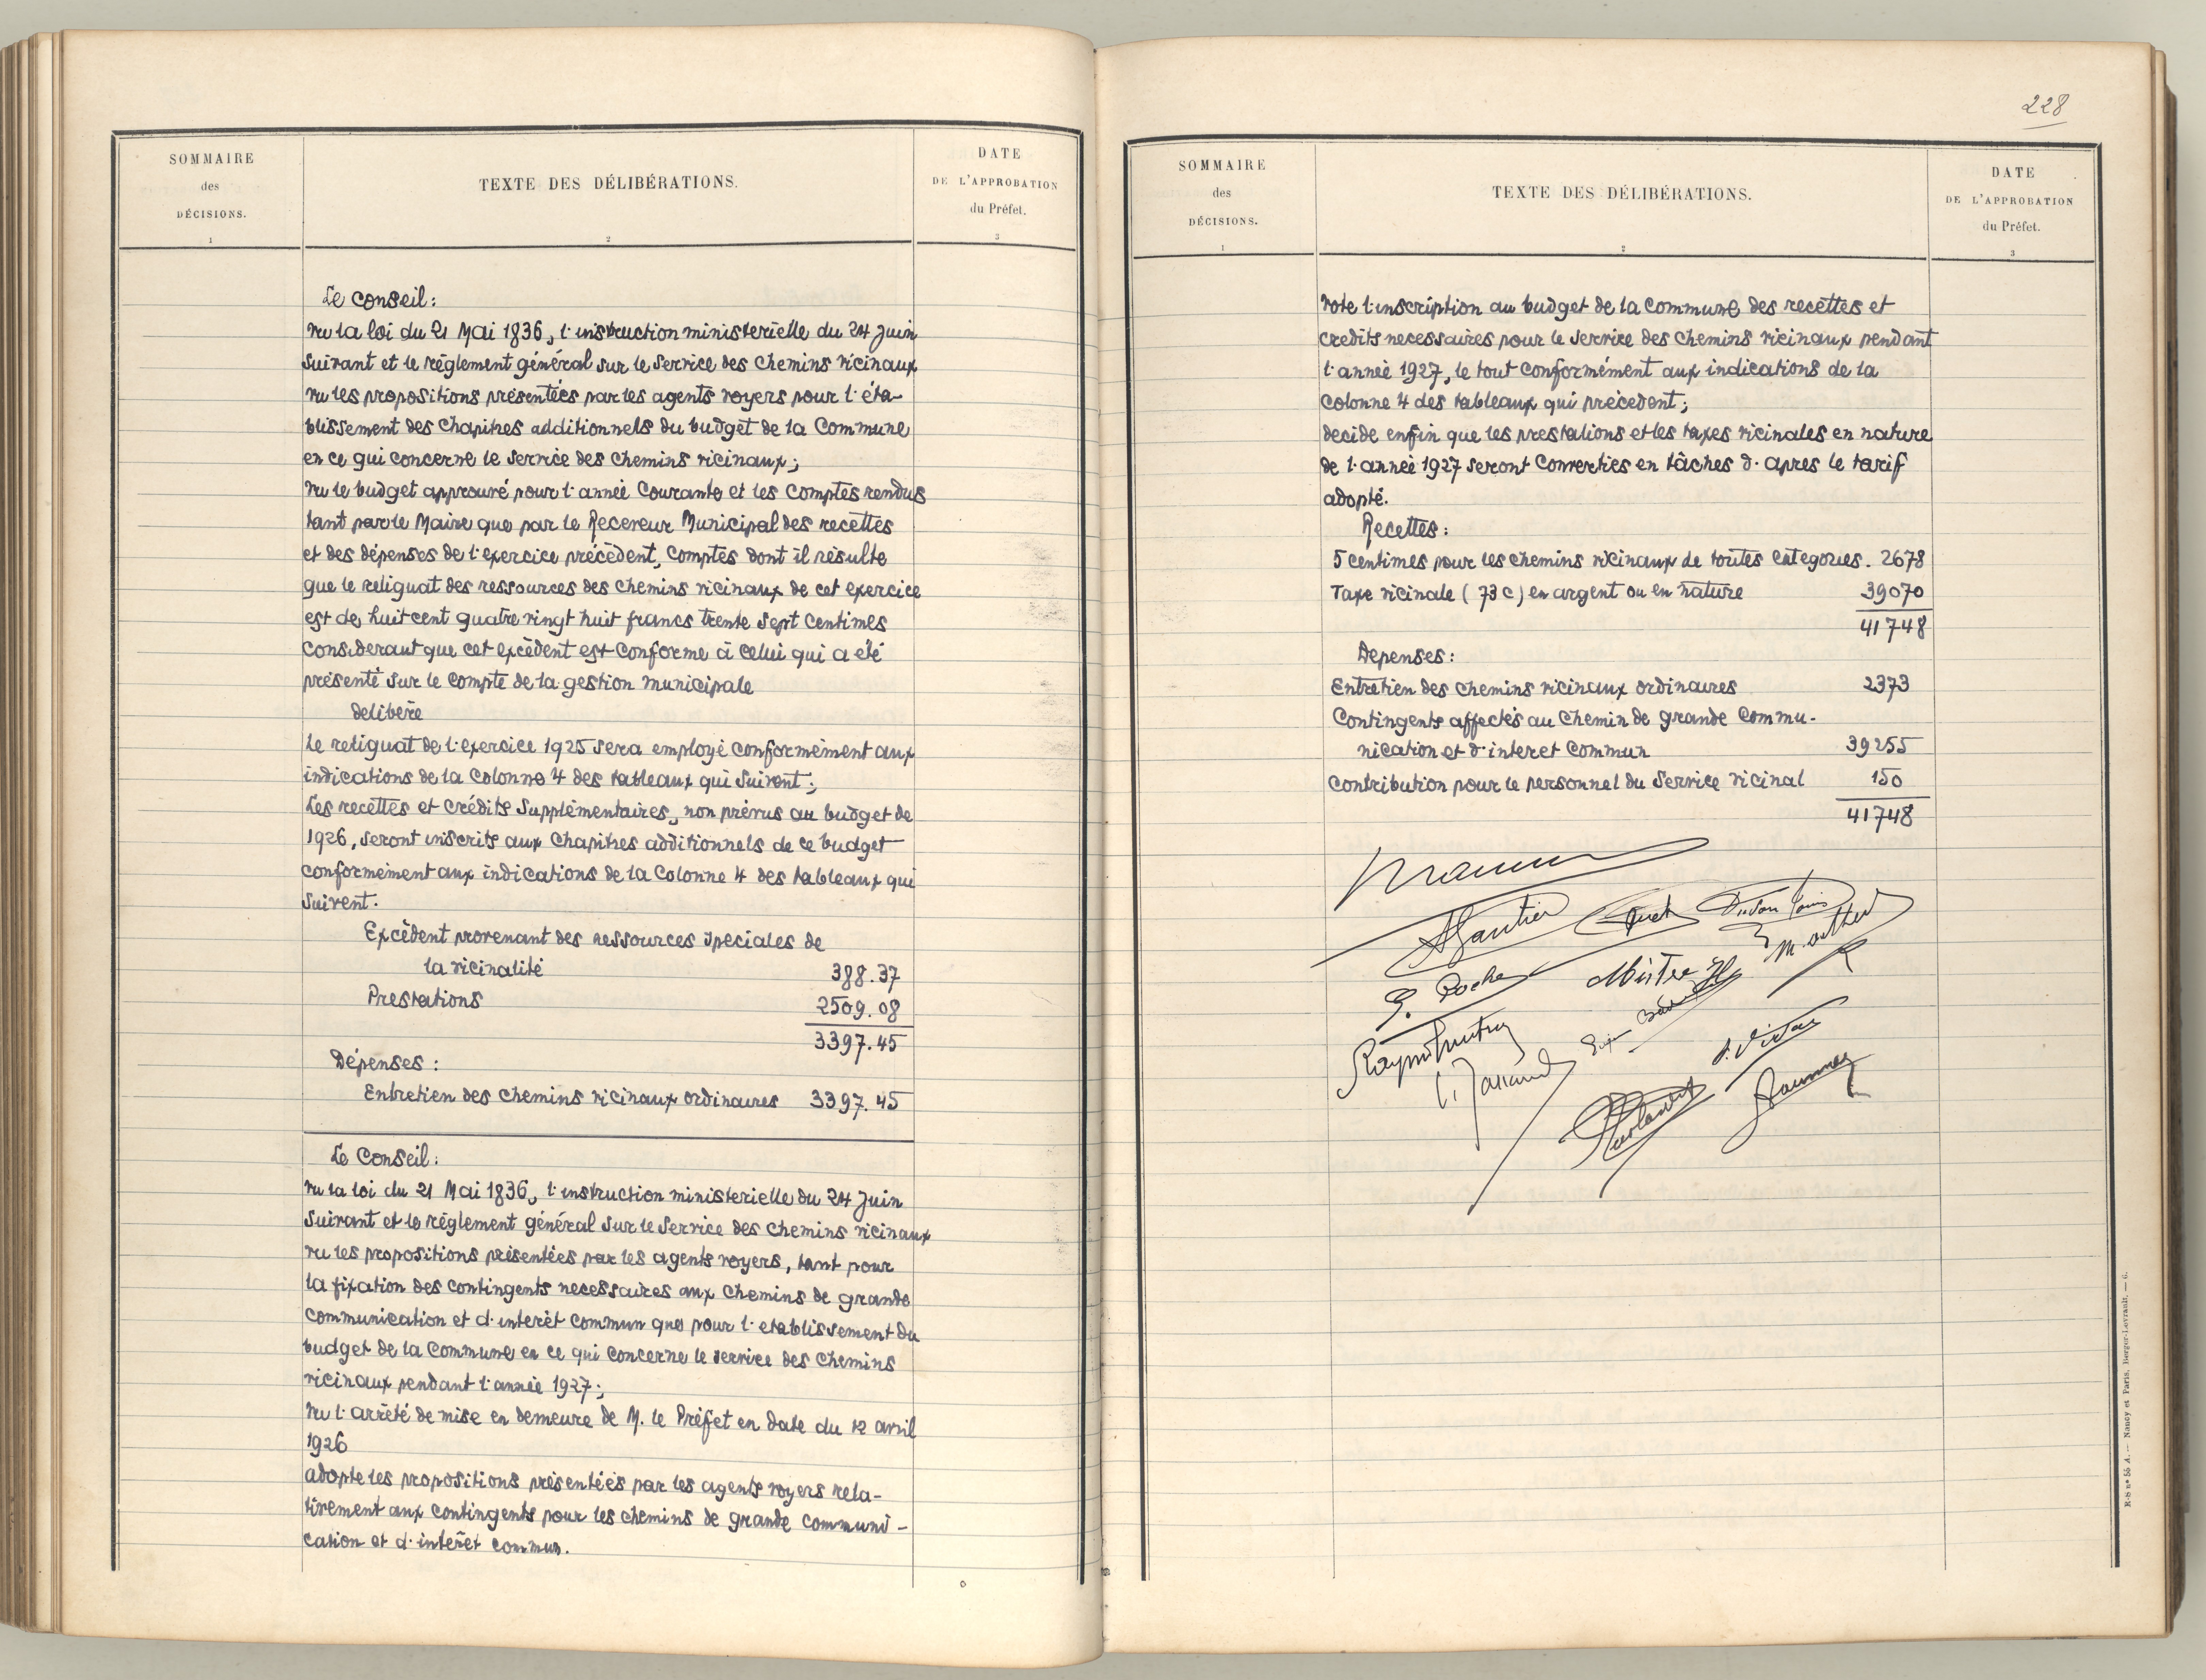 SOMMAIRE
des
DÉCISIONS.
1
TEXTE DES DÉLIBÉRATIONS.
2
DATE
DE L'APPROBATION
du Préfet.
3
Le Conseil :
Vu la loi du 21 Mai 1836, l'instruction ministerielle du 24 Juin
Suivant et le réglement général sur le Service des Chemins vicinaux
Vu les propositions présentées par les agents voyers pour l'éta-
blissement des Chapitres additionnels du budget de la Commune
en ce qui concerne le Service des chemins vicinaux ;
Vu le budget approuvé pour l'année Courante et les Comptes rendus
tant par le Maire que par le Receveur Municipal des recettes
et des dépenses de l'exercice précédent, Comptes dont il résulte
que le reliquat des ressources des chemins vicinaux de cet exercice
est de huit cent quatre vingt huit francs trente Sept Centimes
Considerant que cet excédent est conforme à celui qui a été
présenté sur le compte de la gestion municipale
delibère
Le reliquat de l'exercice 1925 sera employé conformément aux
indications de la Colonne 4 des tableaux qui Suivent ;
Les recettes et crédits Supplémentaires, non prévus au budget de
1926, seront inscrits aux Chapitres additionnels de ce budget
conformément aux indications de la Colonne 4 des tableaux qui
Suivent.
Excédent provenant des ressources speciales de
la vicinalité 388.37
Prestations 2509.08
3397.45
Dépenses :
Entretien des chemins vicinaux ordinaires 3397.45
Le Conseil :
Vu la loi du 21 Mai 1836, l'instruction ministerielle du 24 Juin
Suivant et le réglement général sur le Service des Chemins vicinaux
Vu les propositions présentées par les agents voyers, tant pour
la fixation des contingents necessaires aux Chemins de grande
Communication et d'interêt Commun que pour l'etablissement du
budget de la Commune en ce qui concerne le service des Chemins
vicinaux pendant l'année 1927 ;
Vu l'arrêté de mise en demeure de M. le Préfet en date du 12 avril
1926
adopte les propositions présentées par les agents voyers rela-
tivement aux contingents pour les chemins de grande communi-
cation et d'intérêt commun.
228
SOMMAIRE
des
DÉCISIONS.
1
TEXTE DES DÉLIBÉRATIONS.
2
DATE
DE L'APPROBATION
du Préfet.
3
Vote l'inscription au budget de la Commune des recettes et
credits necessaires pour le Service des Chemins vicinaux pendant
l'année 1927, le tout conformément aux indications de la
Colonne 4 des tableaux qui précedent ;
decide enfin que les prestations et les taxes vicinales en nature
de l'année 1927 seront Converties en tâches d'apres le tarif
adopté.
Recettes :
5 centimes pour les chemins vicinaux de toutes Categories. 2678
Taxe vicinale (73 c) en argent ou en nature 39070
41748
Depenses :
Entretien des chemins vicinaux ordinaires 2373
Contingents affectés au Chemin de grande Commu-
nication et d'interet Commun 39255
Contribution pour le personnel du Service vicinal 150
41748
Gautier
G. Roche Mistre
R-S nº 55 A. — Nancy et Paris, Berger-Levrault. — 6.